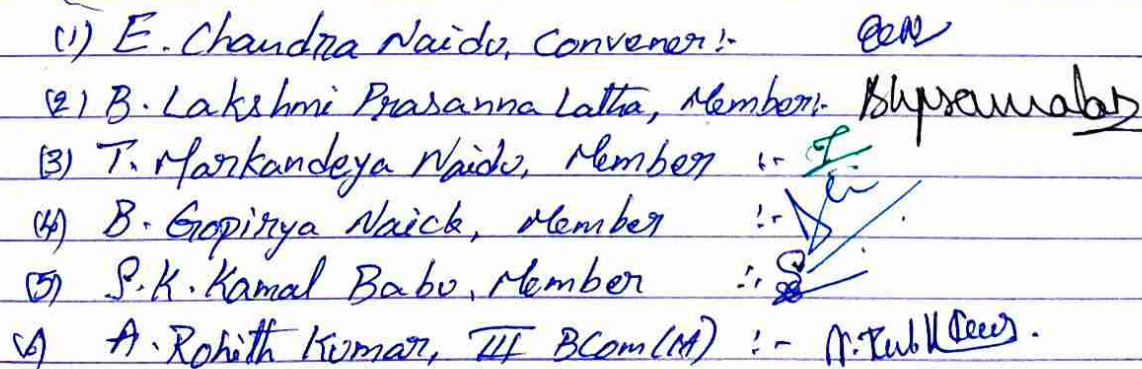 (1) E. Chandra Naidu, Convener :-
(2) B. Lakshmi Prasanna Latha, Member :-
(3) T. Markandeya Naidu, Member :-
(4) B. Gopirya Naick, Member :-
(5) S.K. Kamal Babu, Member :-
(6) A. Rohith Kumar, III BCom (M) :-